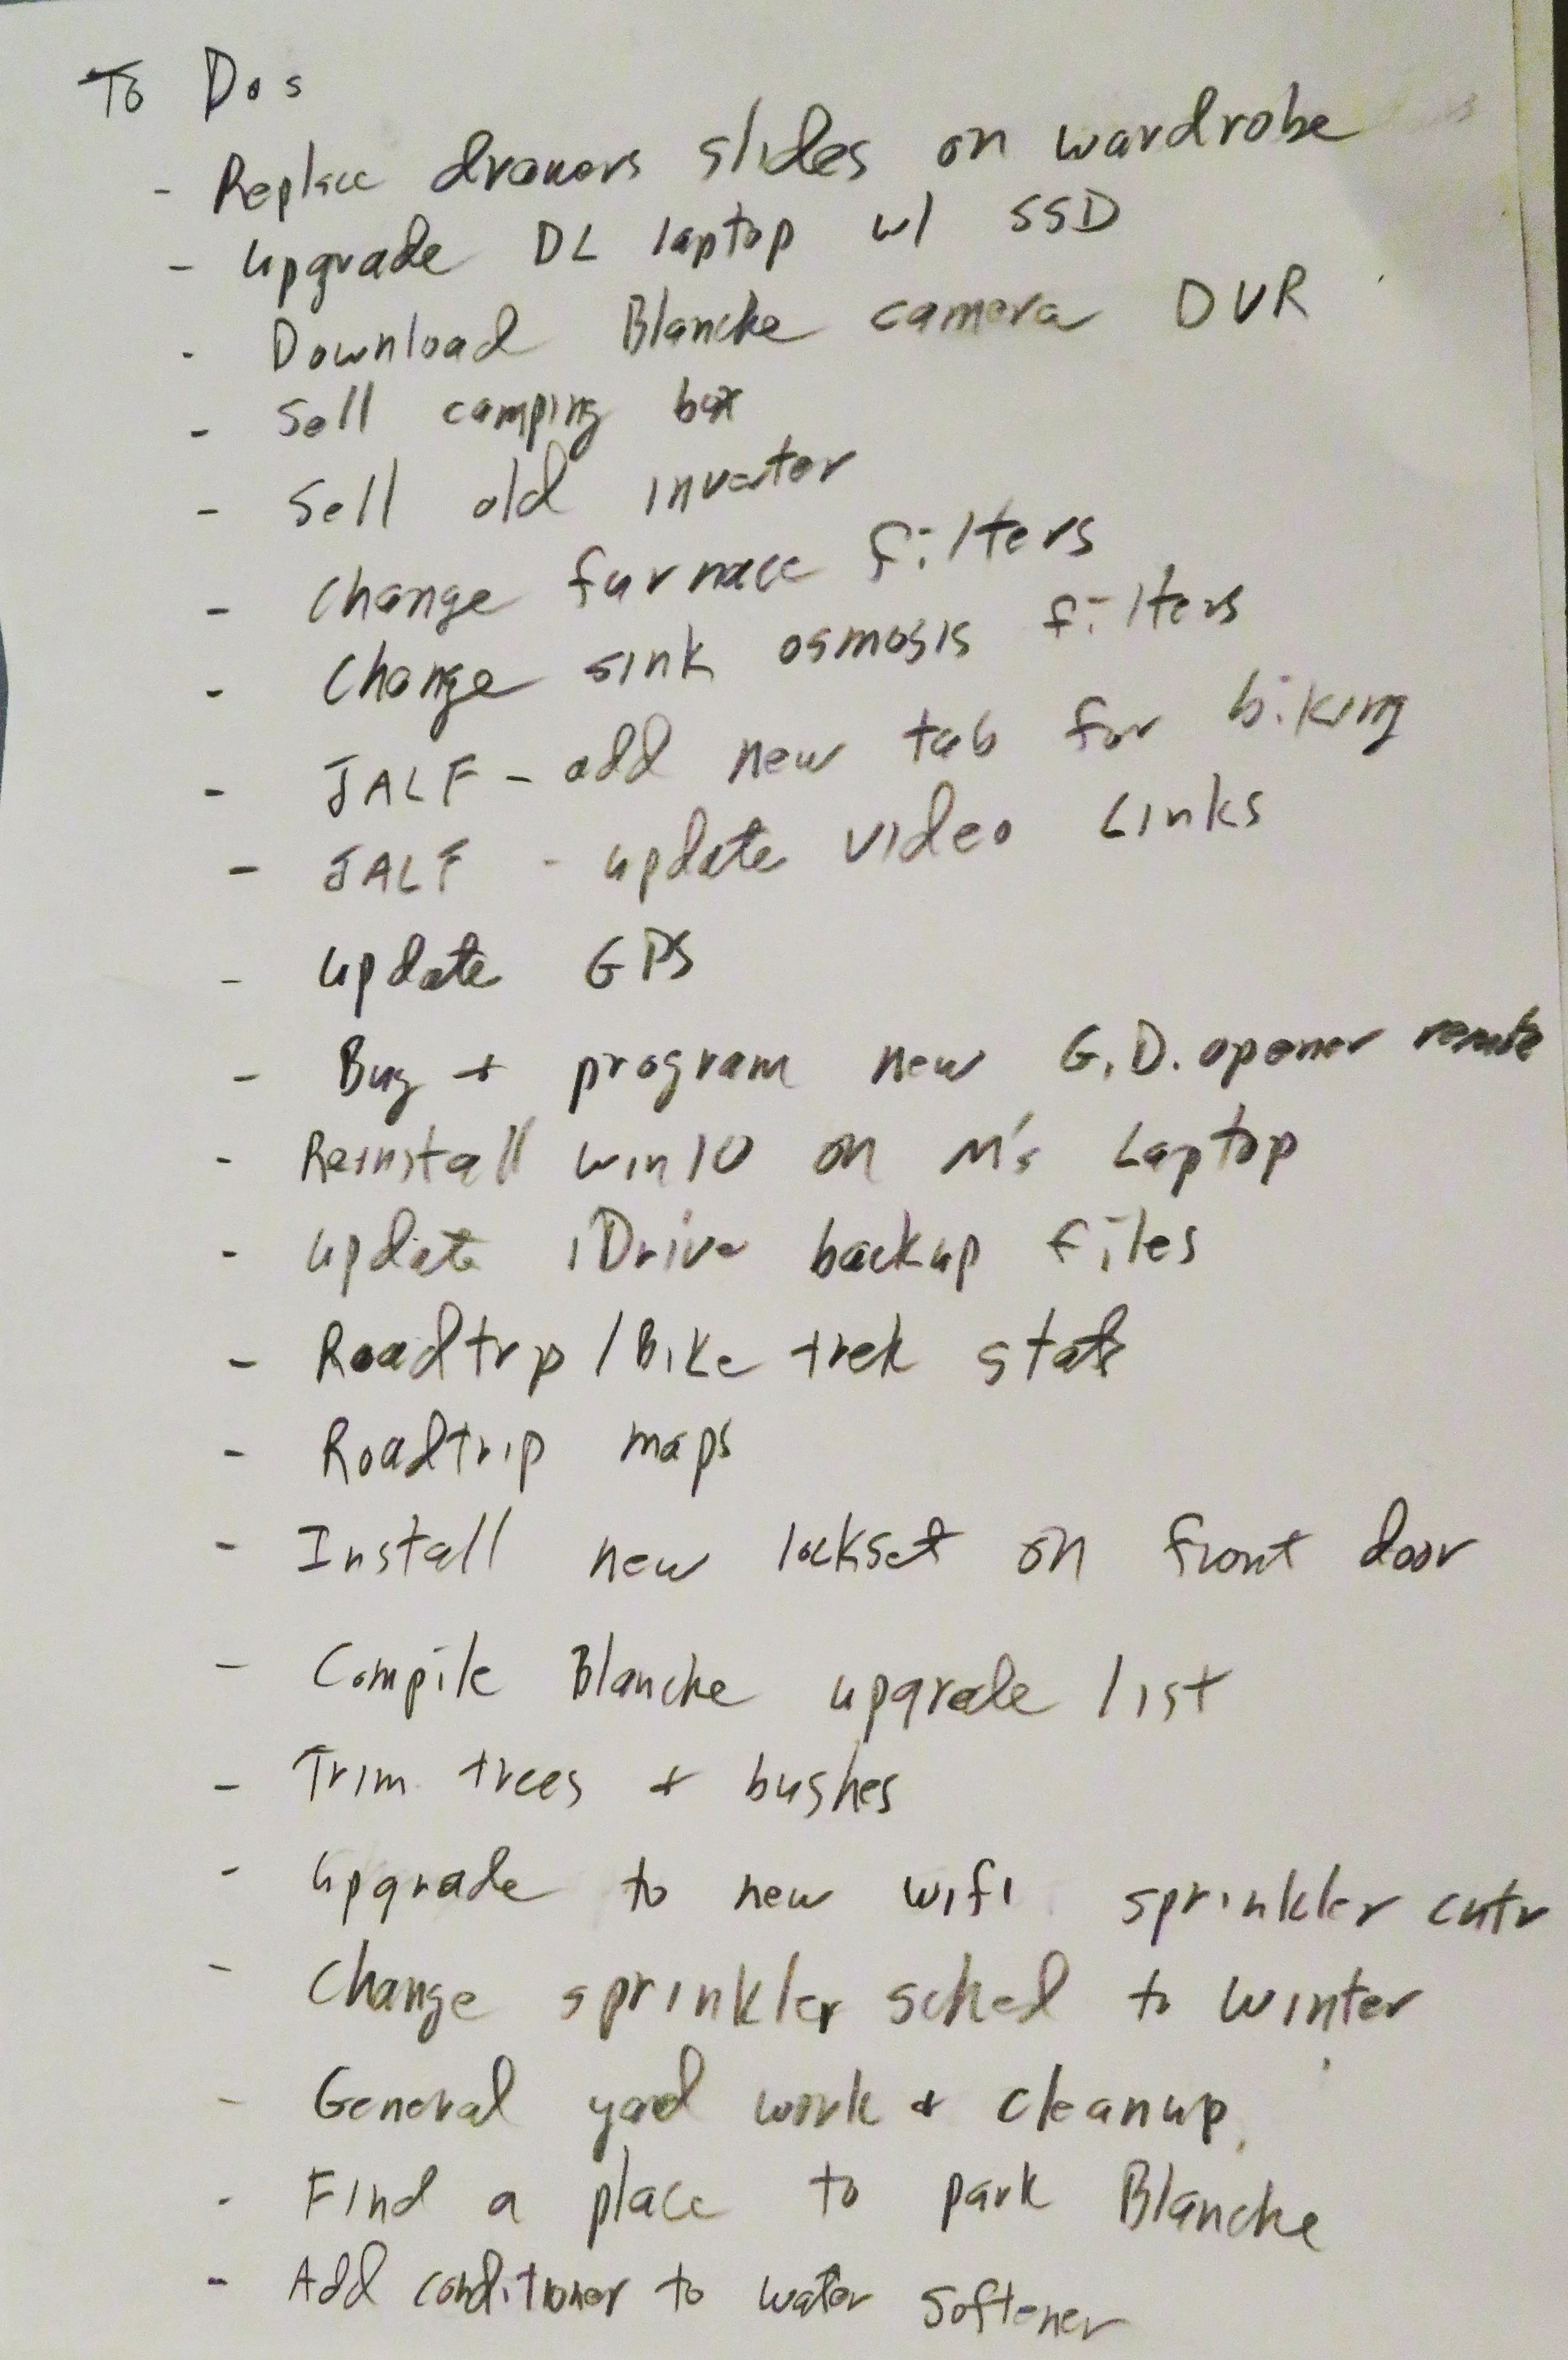 To Dos
- Replace drawers slides on wardrobe
- Upgrade DL laptop w/ SSD
- Download Blanche camera DVR
- Sell camping box
- Sell old invertor
- Change furnace filters
- Change sink osmosis filters
- JALF - add new tab for biking
- JALF - update video Links
- Update GPS
- Buy + program new G.D. opener remote
- Reinstall win10 on M's Laptop
- Update iDrive backup files
- Roadtrp / Bike trek stats
- Roadtrip maps
- Install new lockset on front door
- Compile Blanche upgrade list
- Trim trees + bushes
- Upgrade to new wifi sprinkler cntr
- Change sprinkler sched to winter
- General yard work + cleanup
- Find a place to park Blanche
- Add conditioner to water softener